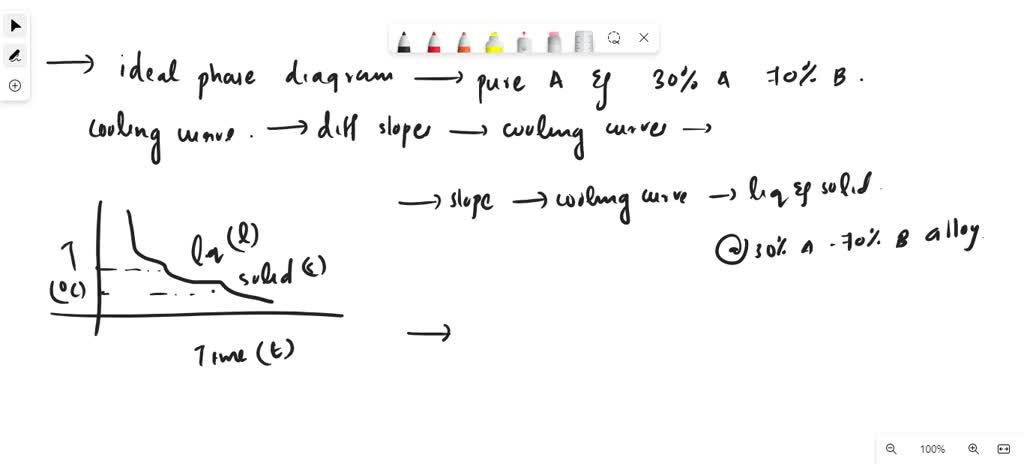 → ideal phase diagram → pure A & 30% A 70% B.
cooling curve. → diff slope → cooling curve →
→ slope → cooling curve → liq & solid.
@ 30% A - 70% B alloy.
T
(°C)
lq (l)
solid (s)
Time (t)
→
100%